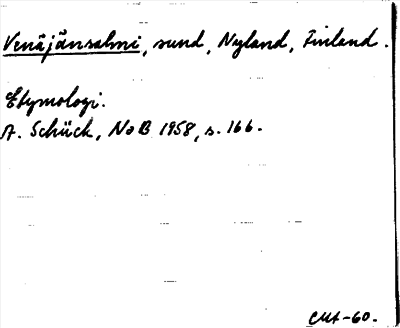 Venäjänsalmi, sund, Nyland, Finland.
Etymologi.
A. Schück, NoB 1958, s. 166.
CMt-60.